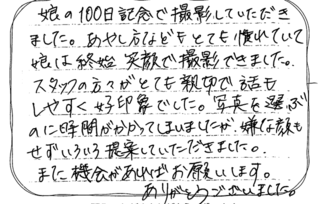 娘の100日記念で撮影していただき
ました。あやし方などもとても慣れていて
娘は終始笑顔で撮影できました。
スタッフの方々がとても親切で話も
しやすく好印象でした。写真を選ぶ
のに時間がかかってしまいましたが、嫌な顔も
せずいろいろ提案していただきました。
また機会があればお願いします。
ありがとうございました。